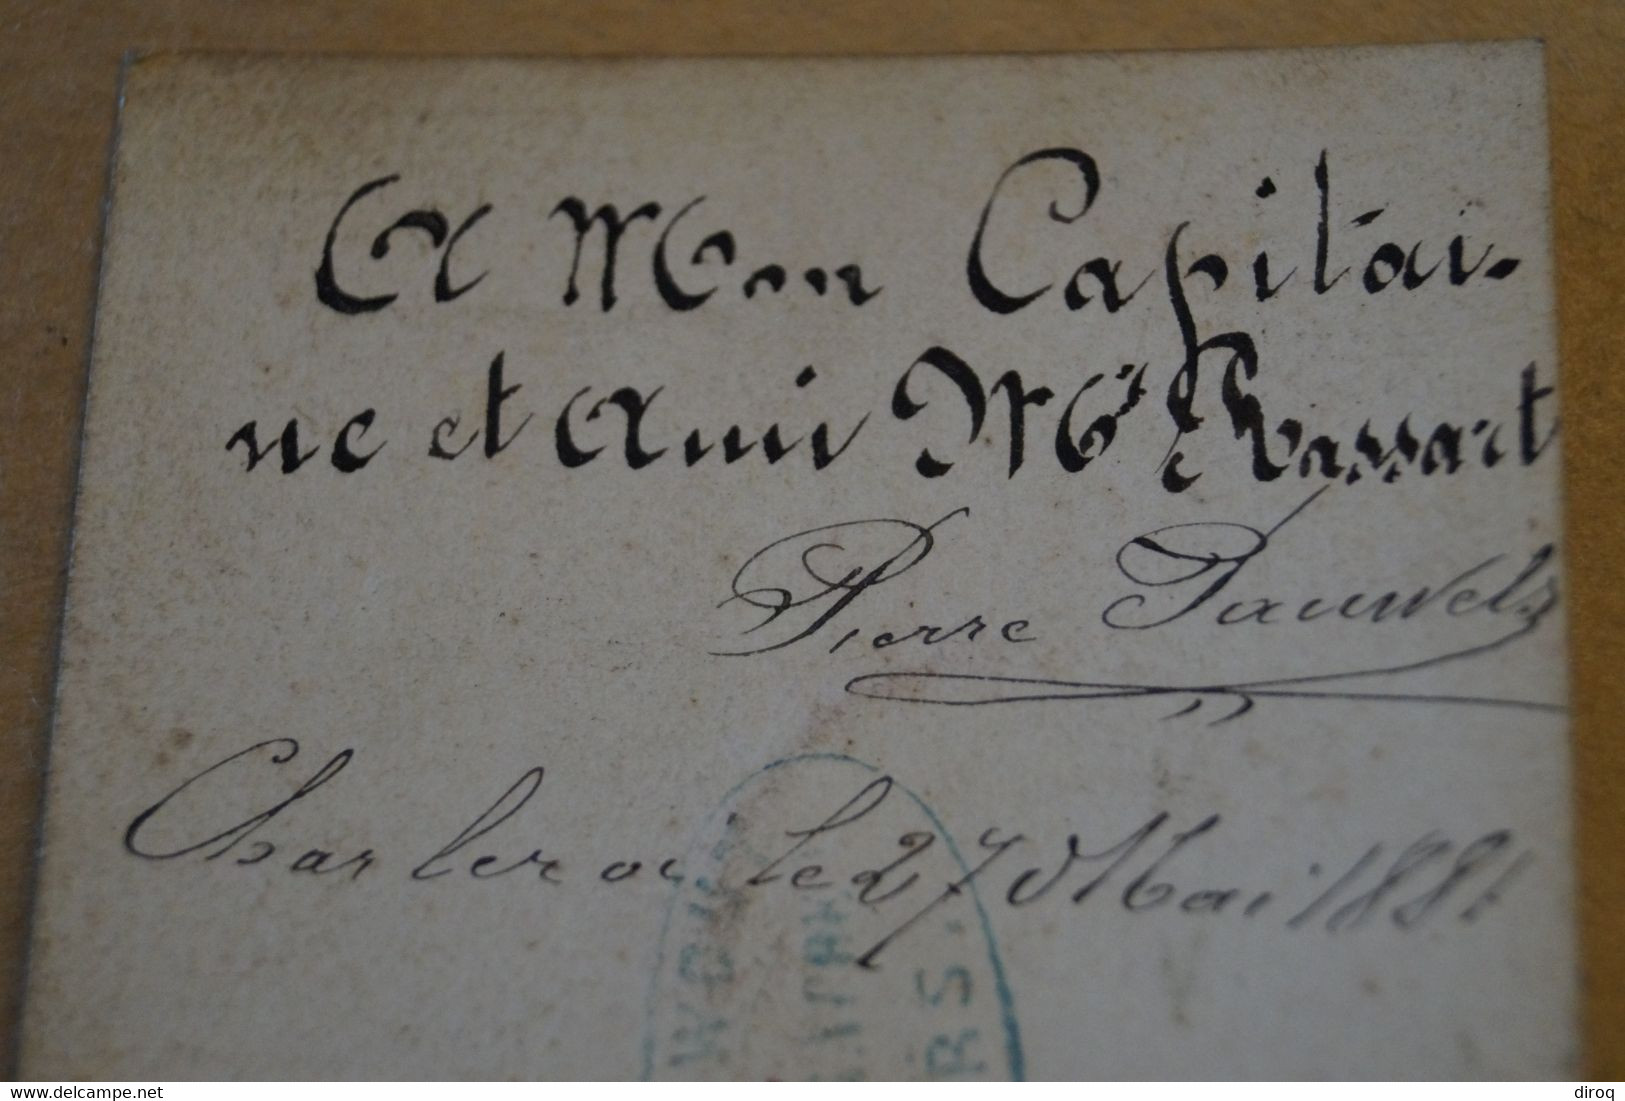 A Mon Capitai-
ne et Ami Mr Rassart
Pierre Pauwels
Charleroi le 27 Mai 1881
RS.
delcampe.net
diroq